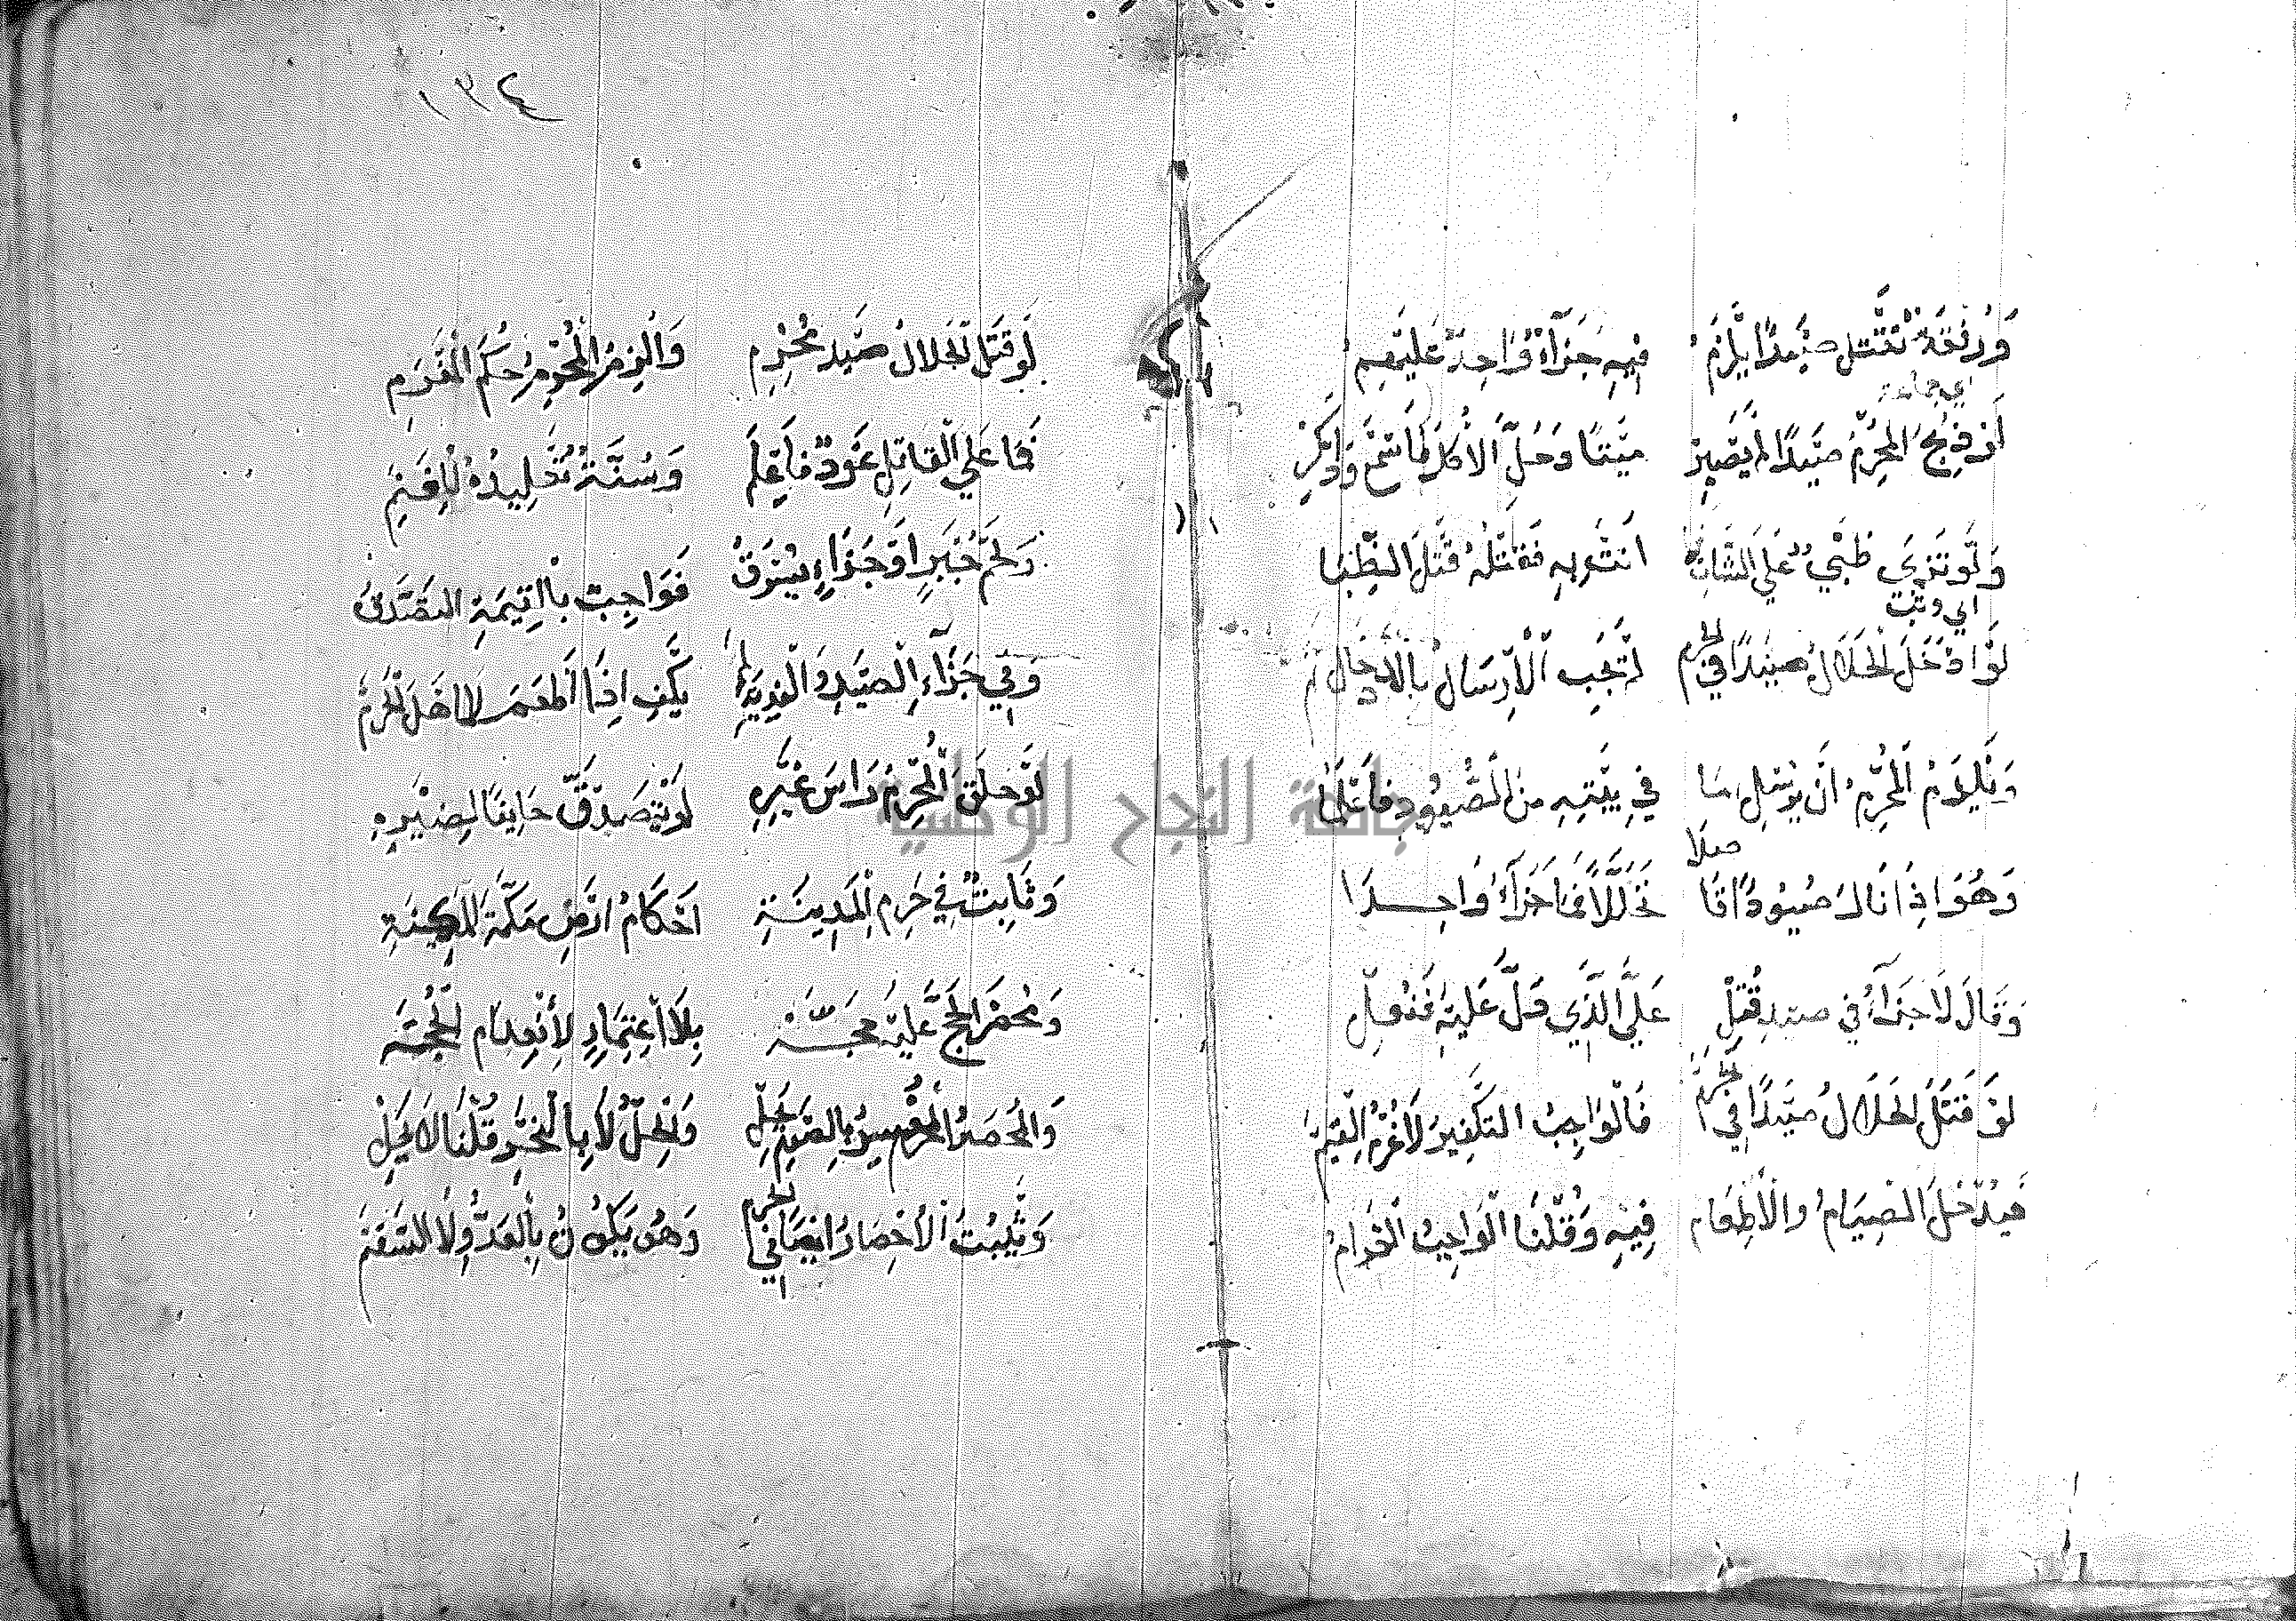 وَرُفْقَةٌ تَقْتُل صَيْدًا يَلْزَمُ فِيهِ جَزَآءٌ وَاحِدٌ عَلَيهِمُ
اي جماعة
لَوْ ذَبَحَ المُحْرِمُ صَيْدًا لَمْ يَصِرْ مَيْتًا وَحُلَّ الأكْلُ
وَلَوْ نَزَى ظَبْيٌ عَلَى الشَّاةِ انْثَوِيهِ فَقَتْلُهُ قَتْلَ الظِّبَا
اي وثب
لَوْ ادْخَلَ الحَلَالُ صَيْدًا في الحرم لَمْ يَجِب الْاِرْسَالُ بالْادْخَالِ
وَيَلْزَمُ الْمُحْرِمُ أَنْ يُرْسِلَ مَا فِي بَيْتِهِ مِنَ الصُّيُودِ فَاعْلَمَا
وَهْوَ اذَا نَالَ صُيُودًا قَاصدا تَحَلُّلًا فَمَا جَزَآءٌ وَاحِدَا
وَقَالَ لَا جَزَآءُ في صَيْدٍ قُتِلْ عَلَى الَّذِي دَلَّ عَلَيْهِ
لَوْ قَتَلَ الحَلَالُ صَيْدًا في الحرم فَالْوَاجِبُ التَكْفِيرُ لَا غُرْمُ الْقِيَمْ
فَيُدْخَلُ الصِّيَامُ وَالْاِطْعَام فِيْهِ وَقُلْنَا الْوَاجِبُ الْغَرَامُ
١٣٤
لَوْ قَتَلَ الْحَلَالُ صَيْدَ مُحْرِمِ وَأُلْزِمَ الْمُحْرِمُ حُكْمَ الْمَغْرَمِ
فَمَا عَلَى الْقَاتِلِ عَوْدٌ فَاعْلَمِ وَسُنَّةٌ تَقْلِيدُهُ لِلْغَنَمِ
وَلَحْمُ جُبْرٍ اوْ جَزَاءٍ يُسْرَقُ فَوَاجِبٌ بِالْقِيمَةِ التَصَدُّقُ
وَفِي جَزَآءِ الْصَّيْدِ وَالْفِدْيَةِ لَمْ يَكْفِ اذَا أَطْعَمَ لَا اهْلَ الْحَرَمْ
لَوْ حَلَقَ الْمُحْرِمُ رَاسَ غَيْرِهِ لَمْ يَتَصَدَّقْ حَالِقًا لِضَيْرِهِ
وَثَابِتٌ فِي حَرَمِ الْمَدِينَةِ احْكَامُ ارْضِ مَكَّةَ
وَمُحْصَرُ الحَجِّ عَلَيْهِ حَجَّهْ بِلَا اعْتِمَارٍ لِأنْعِدَامِ الْحُجَّهْ
وَالْمُحْصَرُ بِالصَّوْمِ يَحِلّ وَنَحِلُّ لَا بِالْنَحْرِ قُلْنَا لَا يَحِلّ
وَيَثْبُتُ الْأحْصَارُ ايْضًا في الحرم وَهُوَ يَكُونُ بِالْعَدُوِّ لَا السَّقَمْ
جامعة النجاح الوطنية